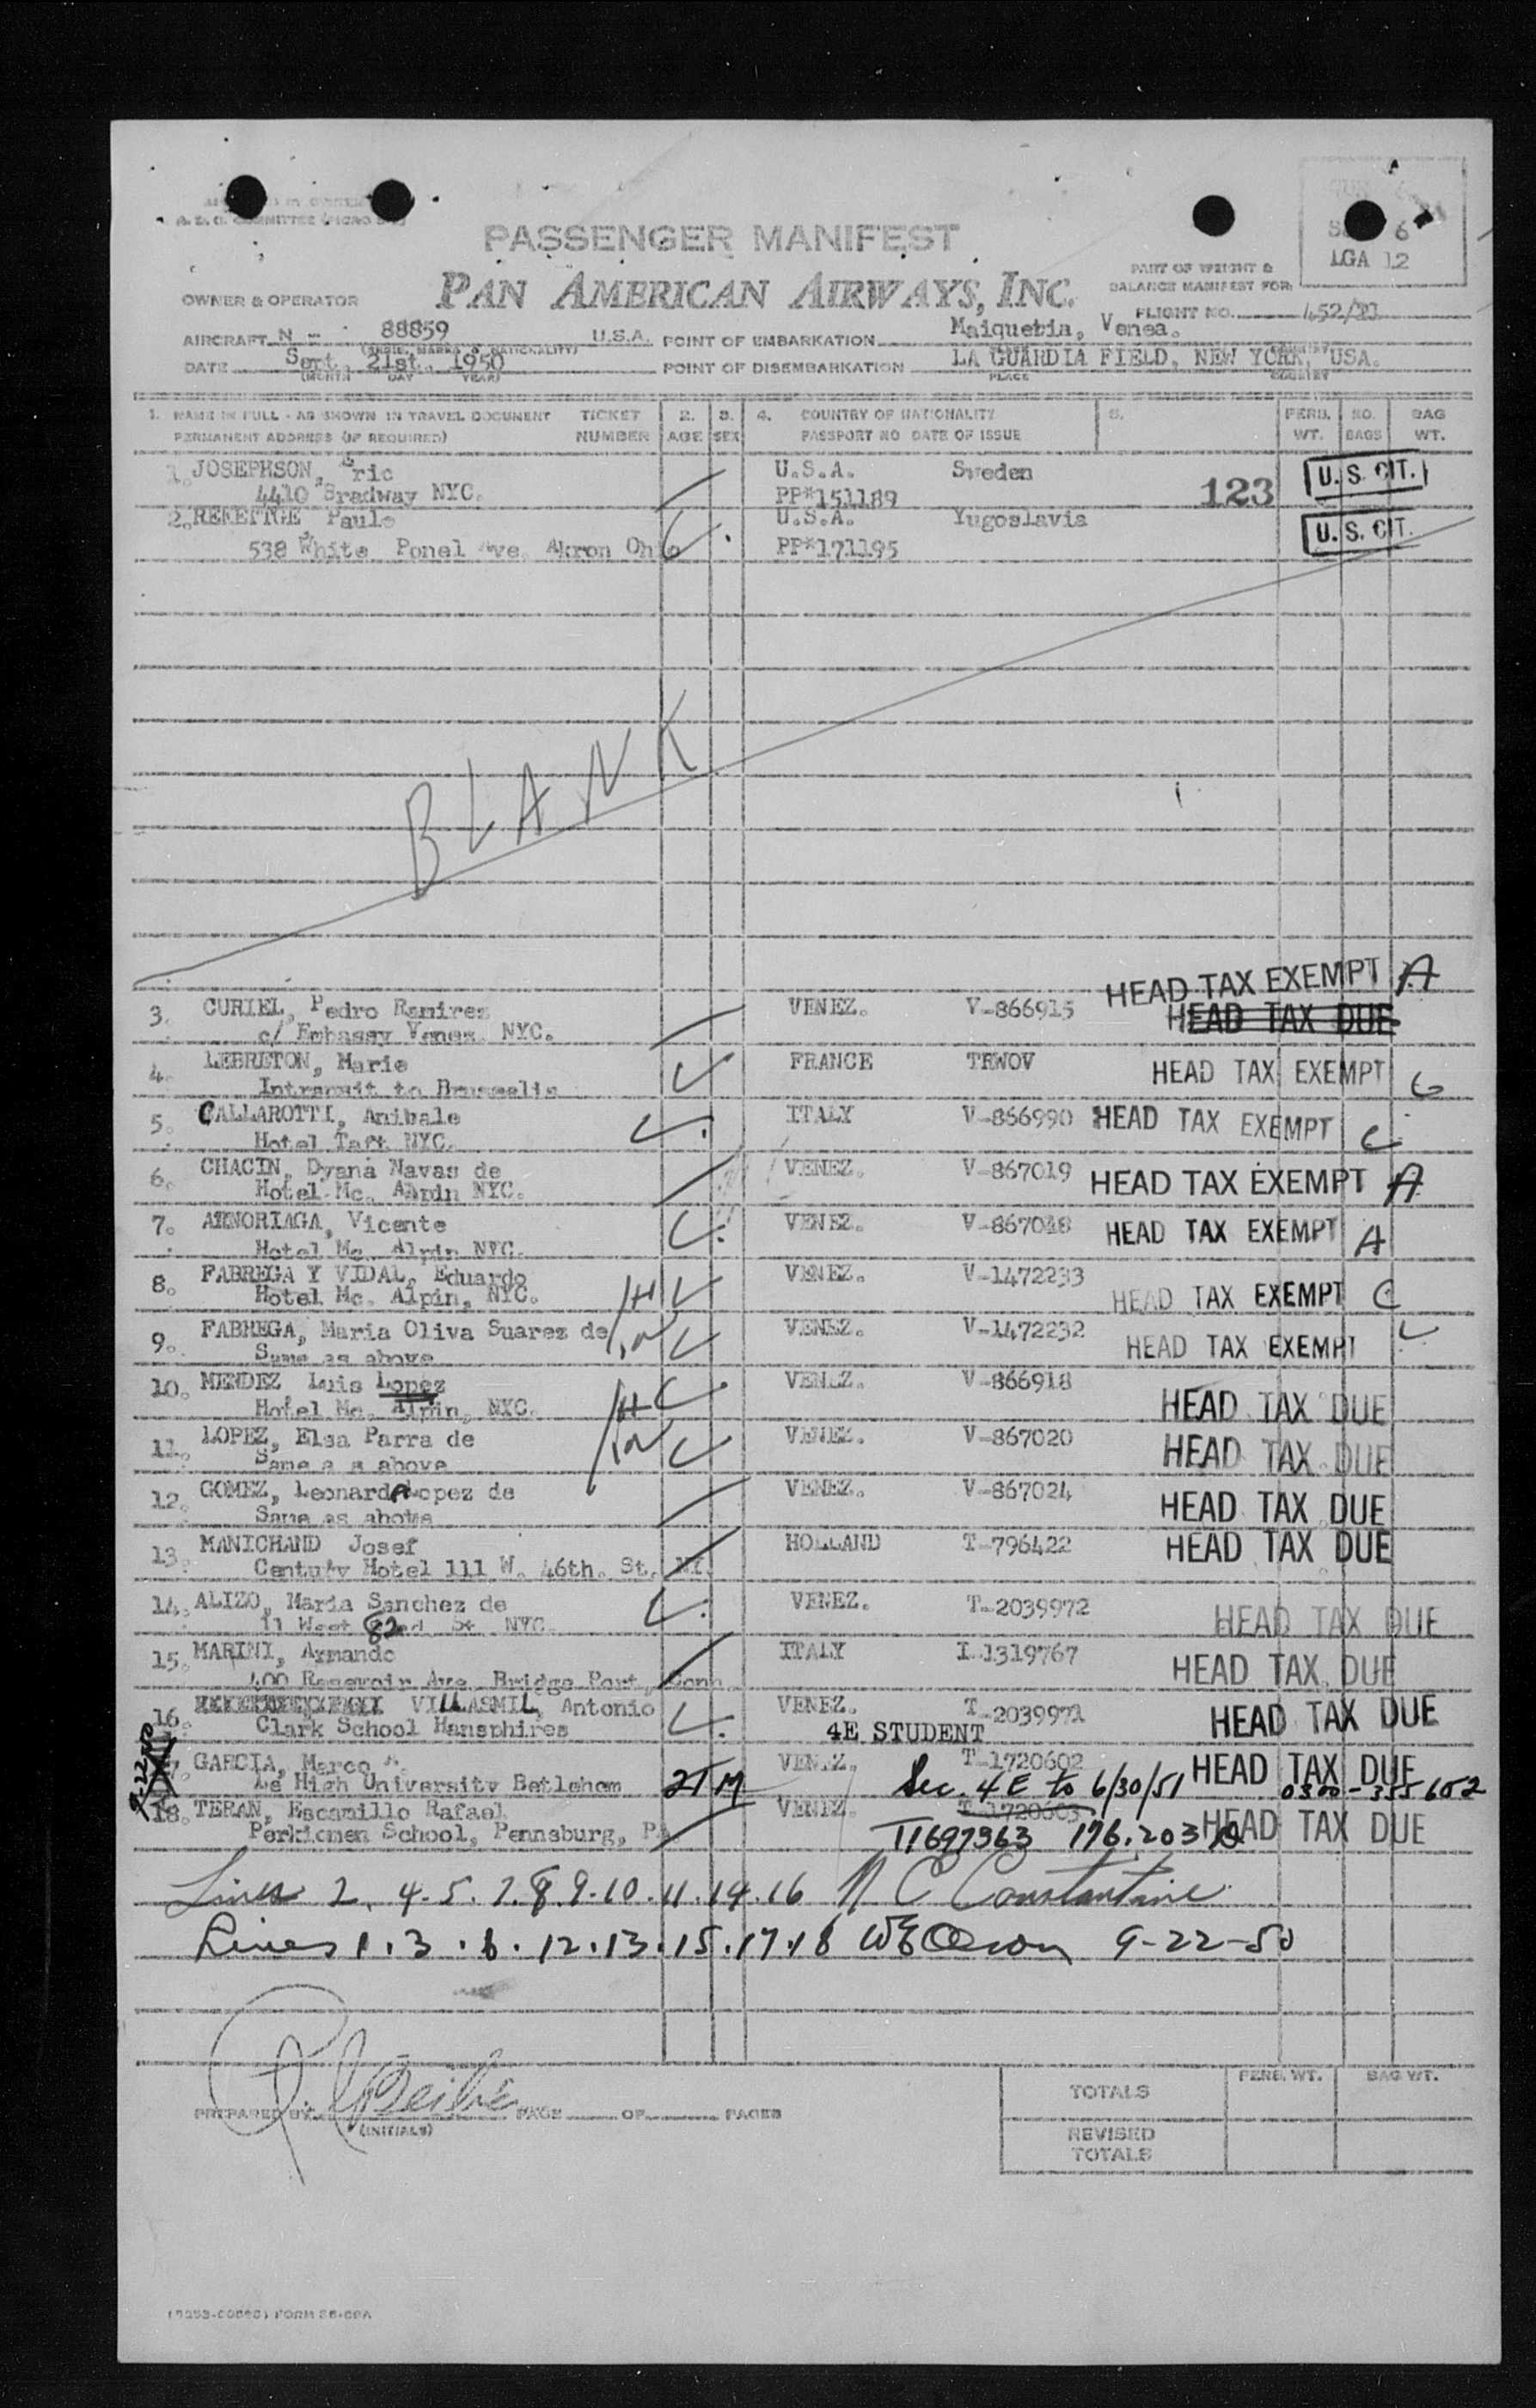 PASSENGER MANIFEST
PAN AMERICAN AIRWAYS, INC.
LGA 12
PART OF WEIGHT &
BALANCE MANIFEST FOR:
FLIGHT NO. 452/21
OWNER & OPERATOR
AIRCRAFT N - 88859 U.S.A. POINT OF EMBARKATION Maiquetia, Venea.
DATE Sept. 21st. 1950 POINT OF DISEMBARKATION LA GUARDIA FIELD, NEW YORK, USA.
(MONTH DAY YEAR) PLACE COUNTRY
1. NAME IN FULL - AS SHOWN IN TRAVEL DOCUMENT TICKET 2. 3. 4. COUNTRY OF NATIONALITY 5. PERS. NO. BAG
PERMANENT ADDRESS (IF REQUIRED) NUMBER AGE SEX PASSPORT NO DATE OF ISSUE WT. BAGS WT.
1. JOSEPHSON, Eric U.S.A. Sweden U.S. CIT.
4410 Bradway NYC. PP*151189 123
2. Paul U.S.A. Yugoslavia U.S. CIT.
538 White Ponel Ave. Akron Ohio PP*171195
BLANK
3. CURIEL, Pedro Ramirez VENEZ. V-866915 HEAD TAX EXEMPT A
c/ Embassy Venez. NYC. HEAD TAX DUE
4. LEBRETON, Marie FRANCE TRWOV HEAD TAX EXEMPT G
Intransit to Brusselis
5. CALLAROTTI, Anibale ITALY V-866990 HEAD TAX EXEMPT C
Hotel Taft NYC.
6. CHACIN, Dyana Navas de VENEZ. V-867019 HEAD TAX EXEMPT A
Hotel Mc. Aapin NYC.
7. ARNORIAGA, Vicente VENEZ. V-867048 HEAD TAX EXEMPT A
Hotel Mc. Alpin NYC.
8. FABREGA Y VIDAL, Eduardo VENEZ. V-1472233 HEAD TAX EXEMPT C
Hotel Mc. Alpin, NYC. H
9. FABREGA, Maria Oliva Suarez de VENEZ. V-1472232 HEAD TAX EXEMPT
Same as above W
10. MENDEZ, Luis Lopez VENEZ. V-866918 HEAD TAX DUE
Hotel Mc. Alpin, NYC. H
11. LOPEZ, Elsa Parra de VENEZ. V-867020 HEAD TAX DUE
Same a s above W
12. GOMEZ, LeonardA Lopez de VENEZ. V-867024 HEAD TAX DUE
Same as above
13. MANICHAND Josef HOLLAND T-796422 HEAD TAX DUE
Century Hotel 111 W. 46th. St. NY.
14. ALIZO, Maria Sanchez de VENEZ. T-2039972 HEAD TAX DUE
11 West 82nd St NYC.
15. MARINI, Armando ITALY I-1319767 HEAD TAX DUE
400 Resevoir Ave. Bridge Port, Conn.
16. VILLASMIL, Antonio VENEZ. T-2039971 HEAD TAX DUE
Clark School Hansphires 4E STUDENT
9-22-50
17. GARCIA, Marco A. VENEZ. T-1720602 HEAD TAX DUE
Le High University Betlehem 21 M Sec. 4E to 6/30/51 0300-355602
18. TERAN, Escamillo Rafael VENEZ. T-1720603 HEAD TAX DUE
Perkiomen School, Pennsburg, PA. T1697363
Lines 2. 4. 5. 7. 8. 9. 10. 11. 14. 16 N C Constantine
Lines 1. 3. 6. 12. 13. 15. 17. 18 9-22-50
PREPARED BY PAGE OF PAGES
(INITIALS)
PERS. WT. BAG WT.
TOTALS
REVISED
TOTALS